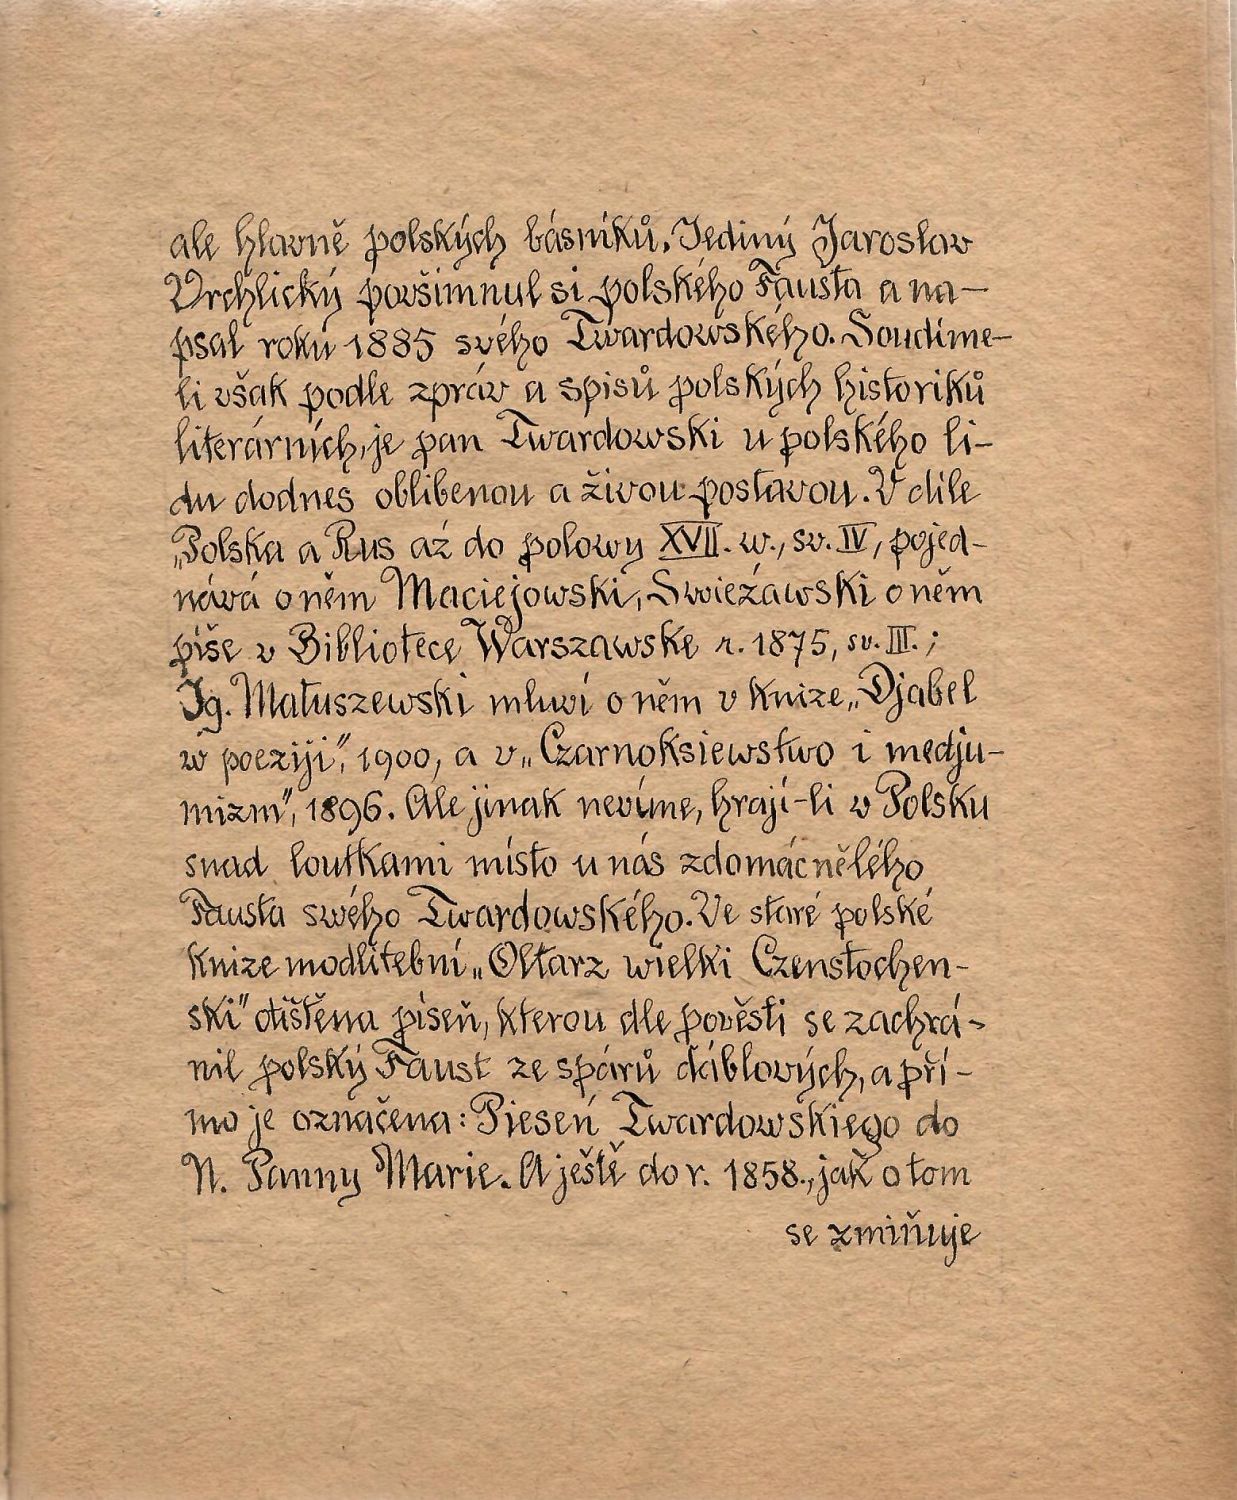 ale hlavně polských básníků. Jediný Jaroslav
Vrchlický povšimnul si polského Fausta a na-
psal roku 1885 svého Twardowského. Soudíme-
li však podle zpráv a spisů polských historiků
literárních, je pan Twardowski u polského li-
du dodnes oblíbenou a živou postavou. V díle
„Polska a Rus aż do polowy XVII. w., sv. IV, pojed-
nává o něm Maciejowski, Swieżawski o něm
píše v Bibliotece Warszawske r. 1875, sv. III.;
Ig. Matuszewski mluví o něm v knize „Djabel
w poeziji”, 1900, a v „Czarnoksiewstwo i medju-
mizm”, 1896. Ale jinak nevíme, hrají-li v Polsku
snad loutkami místo u nás zdomácnělého
Fausta svého Twardowského. Ve staré polské
knize modlitební „Oltarz wielki Czenstochen-
ski” otištěna píseň, kterou dle pověsti se zachrá-
nil polský Faust ze spárů ďáblových, a pří-
mo je označena: Pieseń Twardowskiego do
N. Panny Marie. A ještě do r. 1858., jak o tom
se zmiňuje